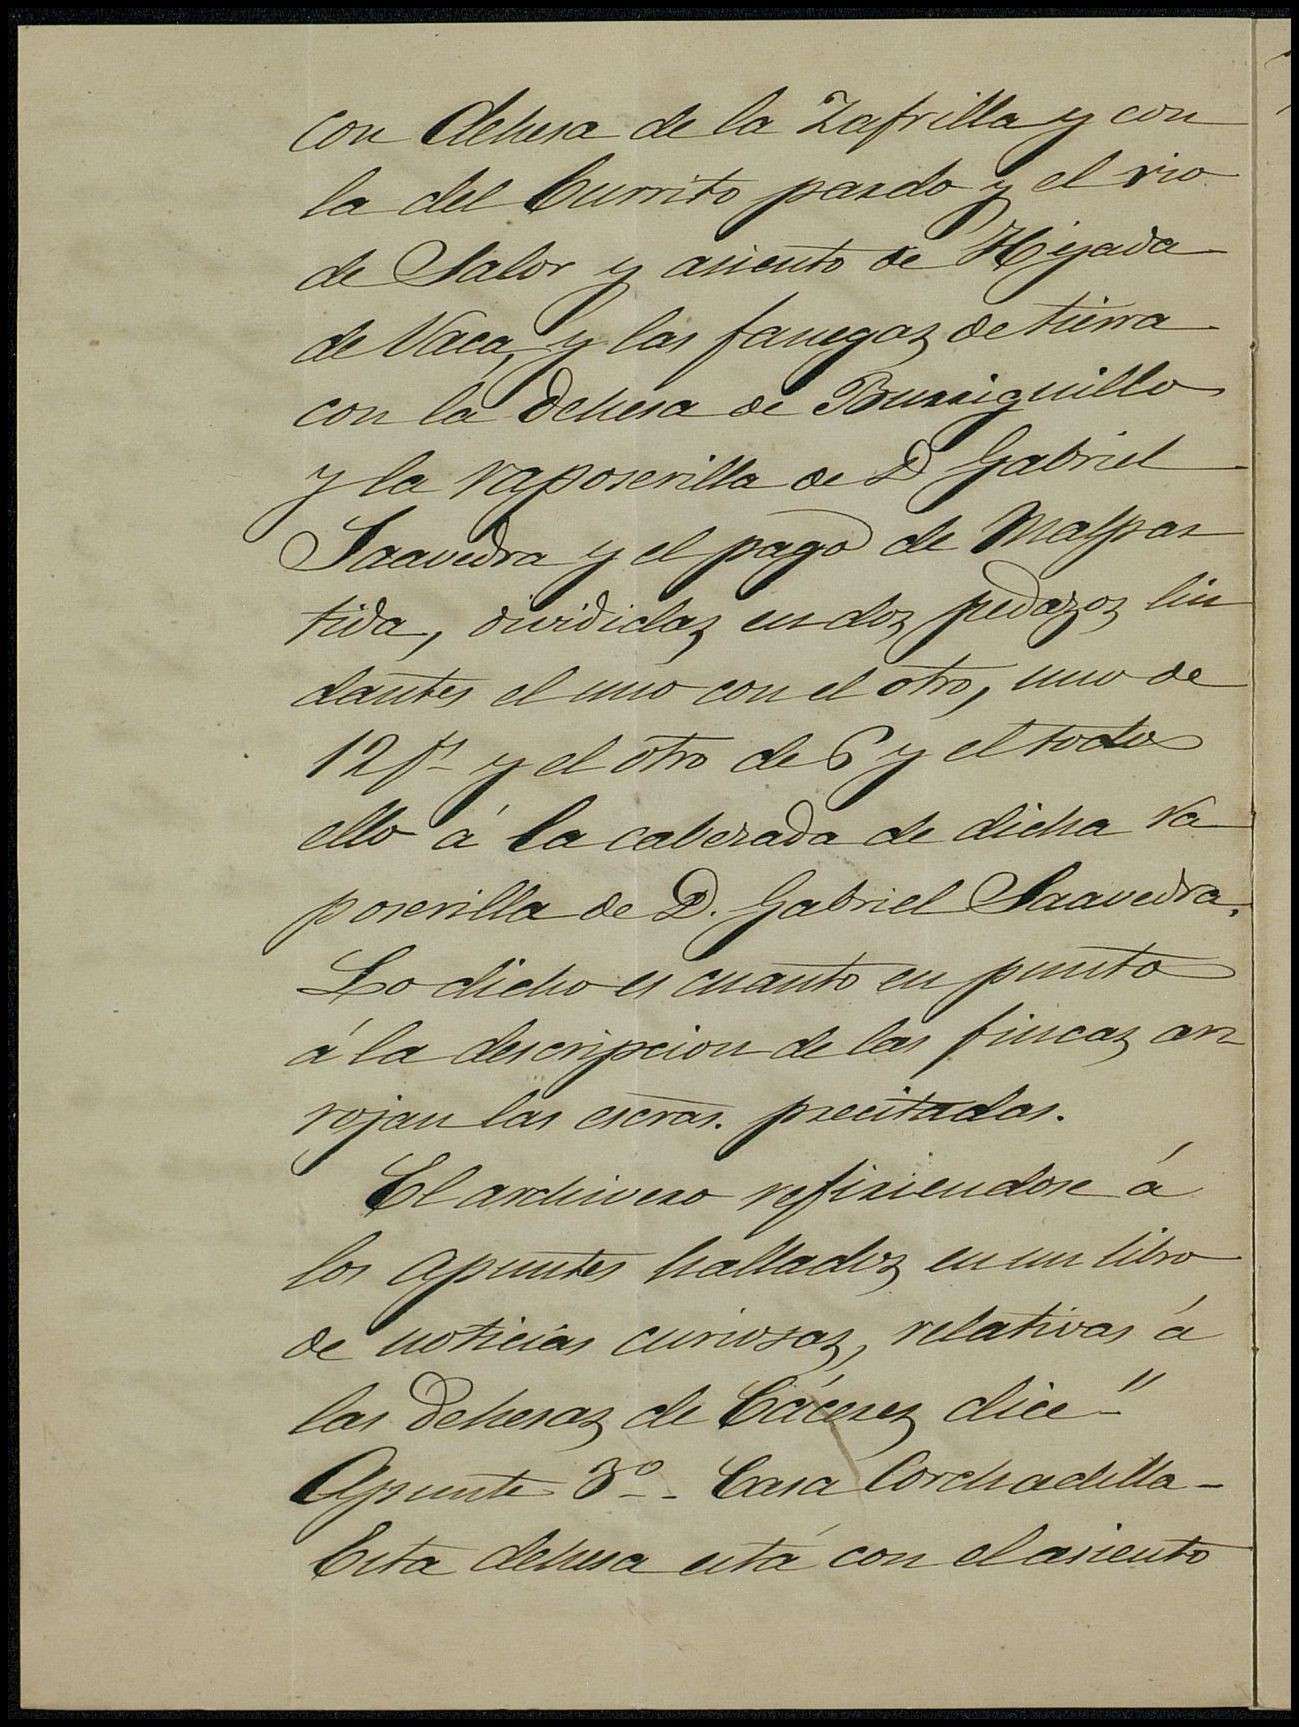 con dehesa de la Zafrilla y con
la del Currito pardo y el rio
de Salor y asiento de Hijada
de Vaca, y las fanegas de tierra
con la dehesa de Burriquillo
y la raposerilla de D Gabriel
Saavedra y el pago de Malpar
tida, divididas en dos pedazos lin
dantes el uno con el otro, uno de
12 fs y el otro de 6 y el todo
ello á la cabezada de dicha ra
poserilla de D. Gabriel Saavedra.
Lo dicho es cuanto en punto
á la descripcion de las fincas ar
rojan las escras. precitadas.
El archivero refiriendose á
los apuntes hallados en un libro
de noticias curiosas, relativas á
las dehesas de Cáceres dice "
Apunte 3º - Casa Corchadilla -
Esta dehesa está con el asiento